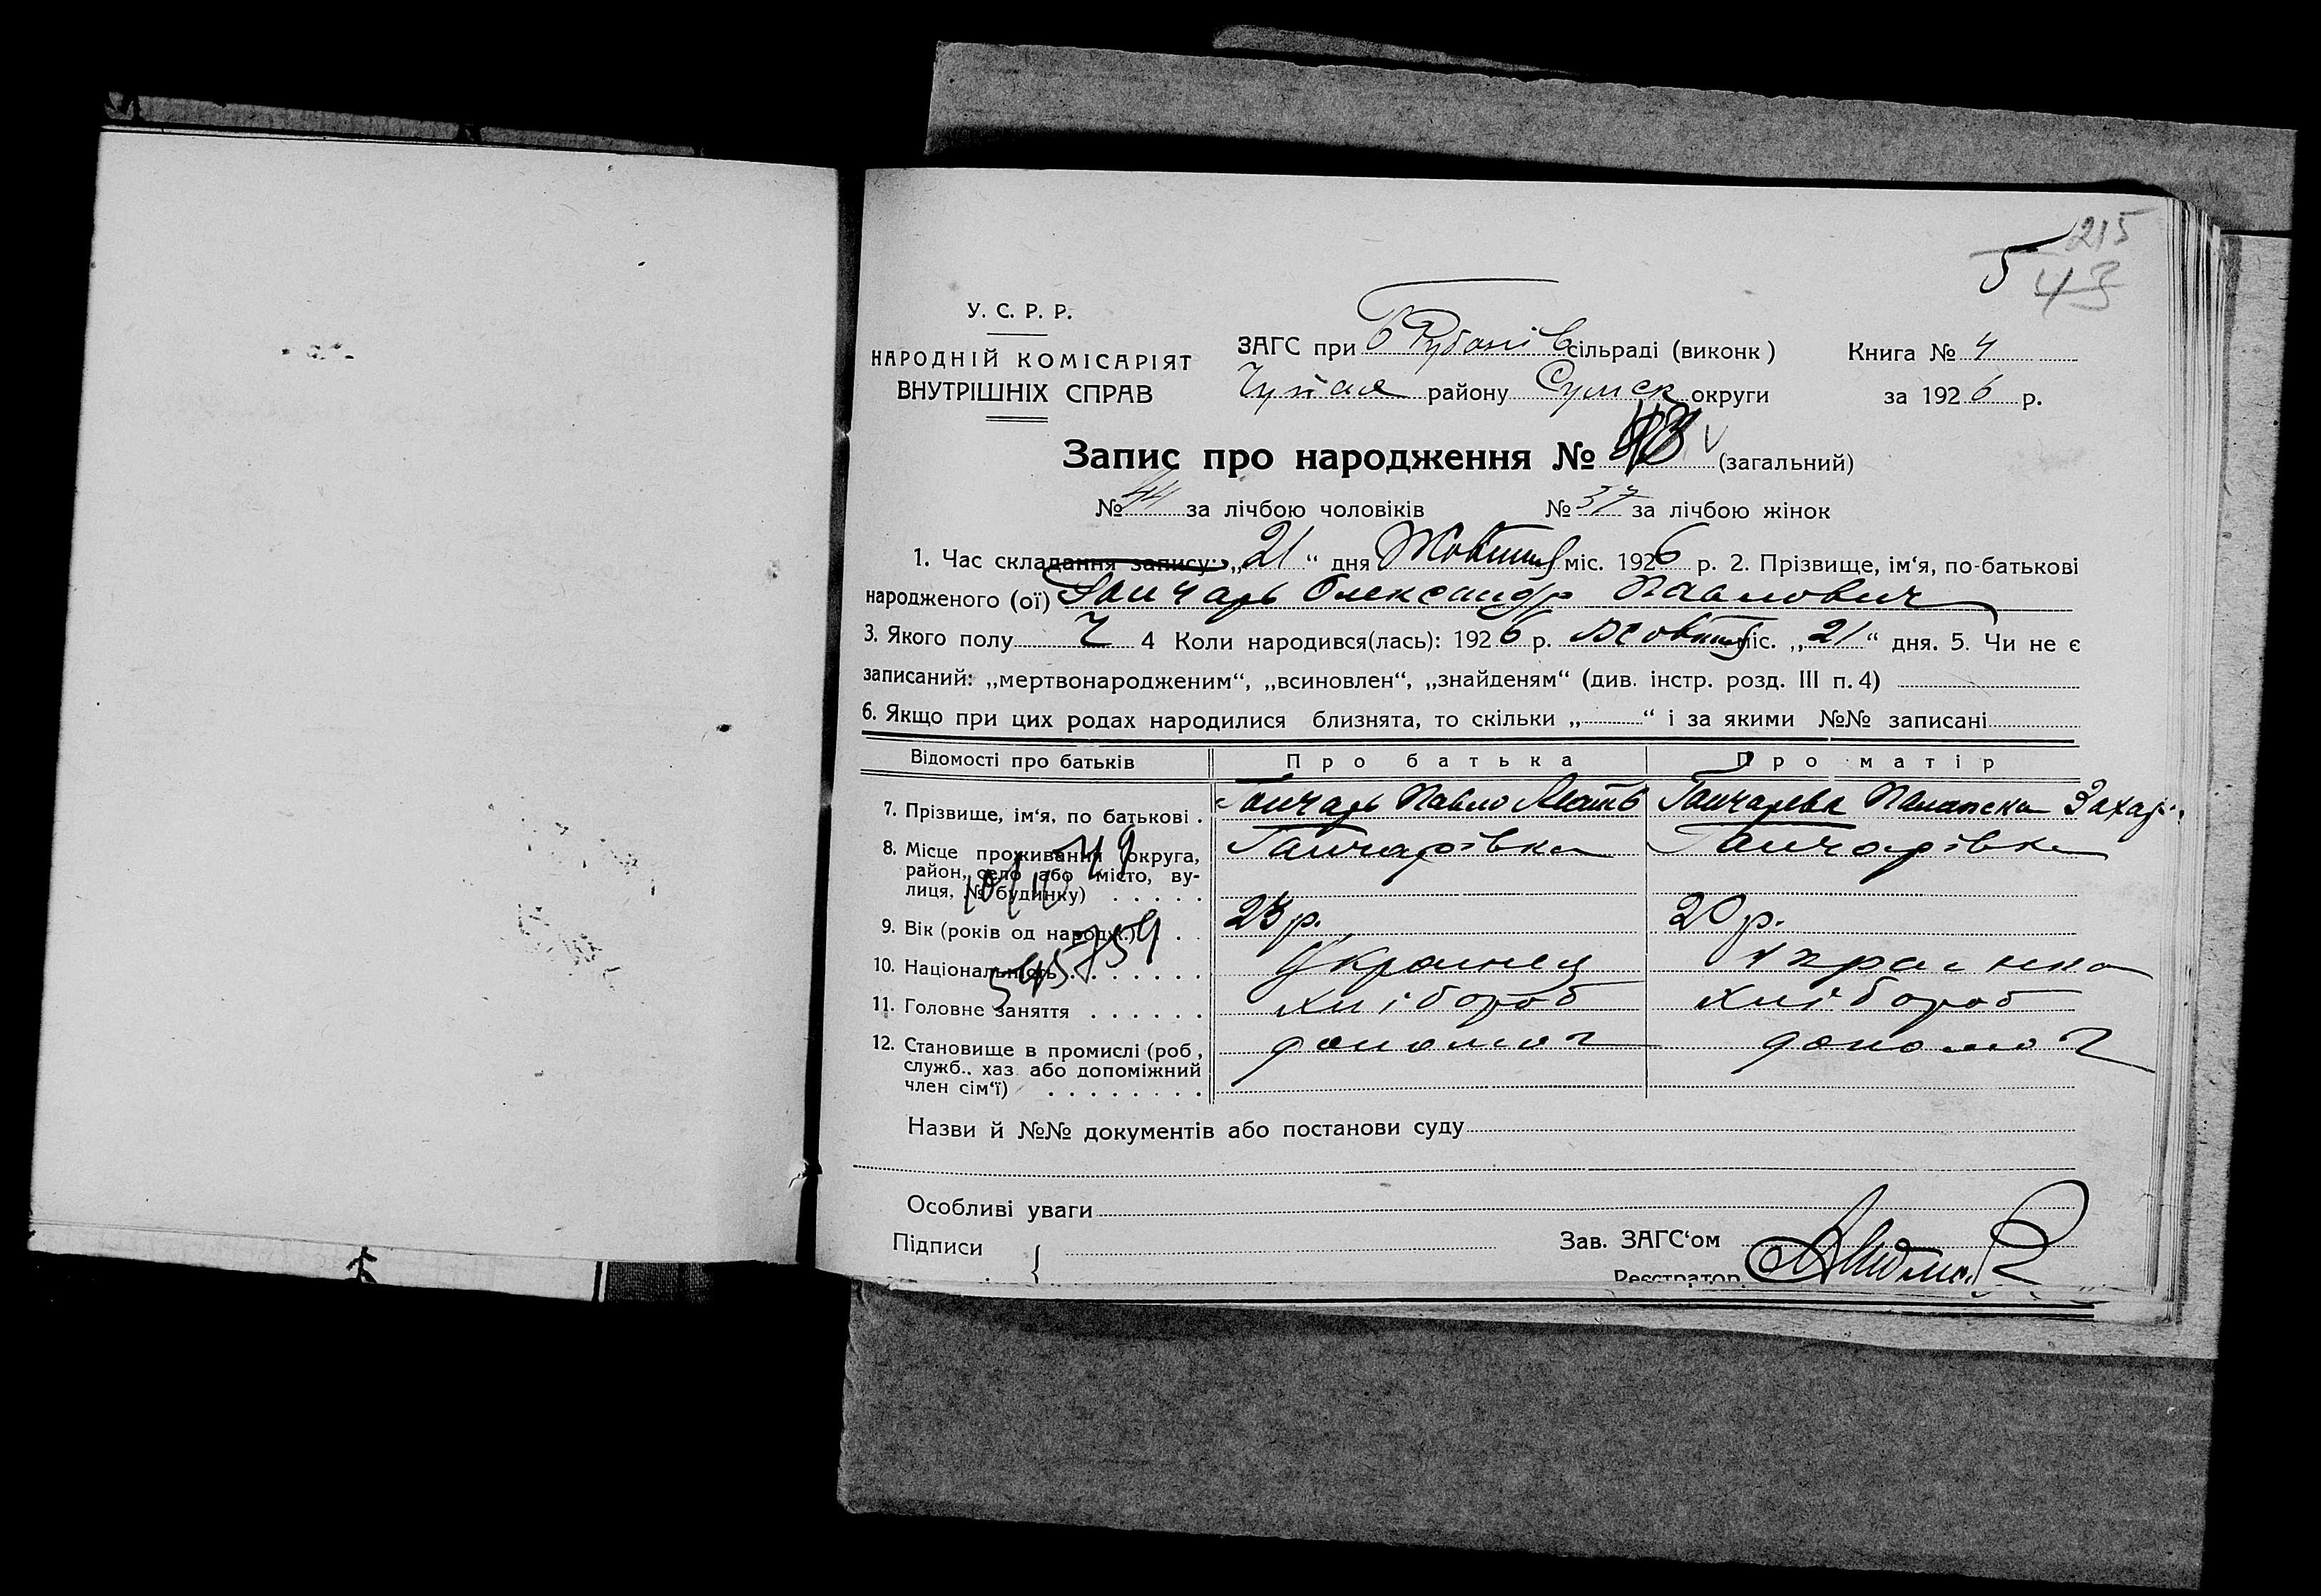 215
5 43
У. С. Р. Р.
НАРОДНІЙ КОМІСАРІЯТ
ВНУТРІШНІХ СПРАВ
ЗАГС при Б Рубанів сільраді (виконк) Книга № 4
району Сумск округи за 1926 р.
Запис про народження № (загальний)
№ 44 за лічбою чоловіків № 37 за лічбою жінок
1. Час складання запису: „21“ дня Жовтня міс. 1926 р. 2. Прізвище, ім‘я, по-батькові
народженого (ої) Гончарь Олександр Павлович
3. Якого полу Ч 4 Коли народився(лась): 1926 р. Жовтня міс. „21“ дня. 5. Чи не є
записаний: „мертвонародженим“, „всиновлен“, „знайденям“ (див. інстр. розд. III п. 4)
6. Якщо при цих родах народилися близнята, то скільки „ “ і за якими №№ записані
Відомості про батьків Про батька Про матір
7. Прізвище, ім‘я, по батькові . Гончарь Павло Матв Гончарева Палажка Захар.
8. Місце проживання (округа, Гончарівка Гончарівка
район, село або місто, ву-
лиця, № будинку) . . . . .
9. Вік (років од народж.) . . . 23 р. 20 р.
10. Національність . . . . . . . Украинец Украінка
11. Головне заняття . . . . . . Хлібороб Хлібороб
12. Становище в промислі (роб., допомог допомог
служб., хаз. або допоміжний
член сім‘ї) . . . . . . . .
Назви й №№ документів або постанови суду
Особливі уваги
Підписи { Зав. ЗАГС‘ом
Реєстратор